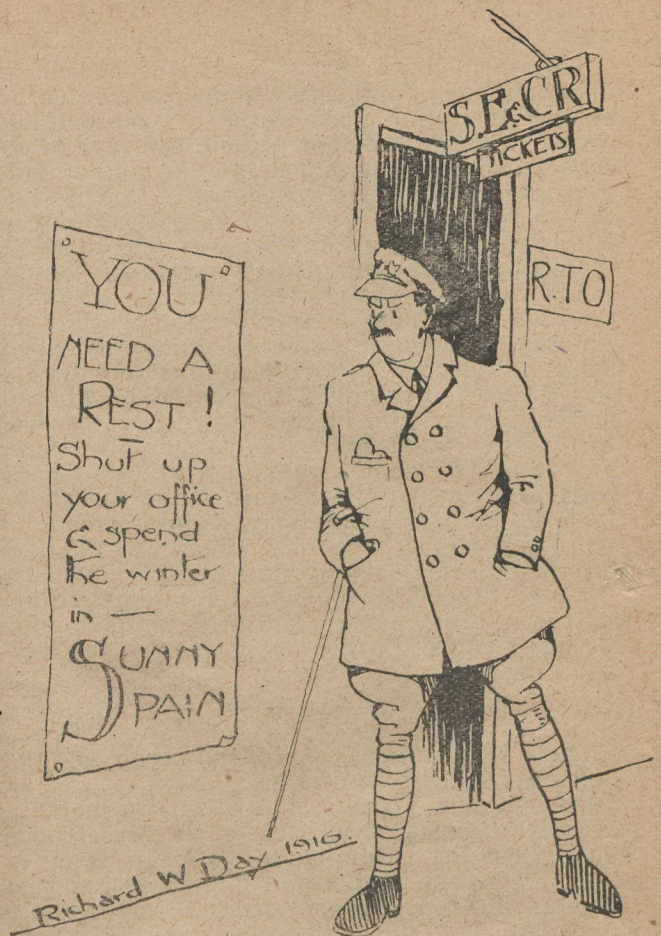 S.E.&C.R
TICKETS
R.T.O
YOU
NEED A
REST!
Shut up
your office
& spend
the winter
in —
SUNNY
SPAIN
Richard W Day 1916.